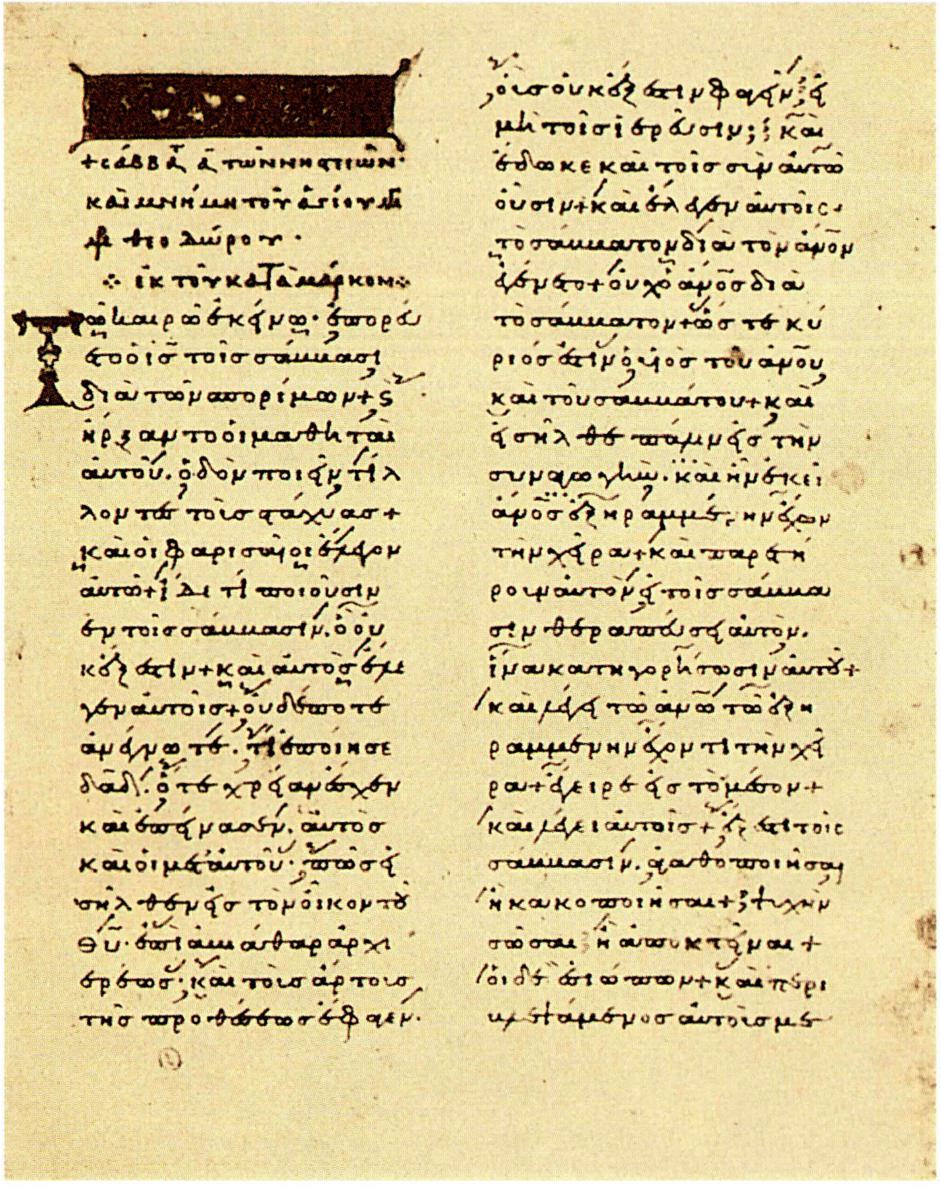 + σαββά ᾱ τῶν νηστειῶν·
καὶ μνήμη τοῦ ἁγίου μεγ
μρ θεοδώρου·
ἐκ τοῦ κατὰ μάρκον
Τῶ καιρῶ ἐκείνω· ἐπορεύ
ετο ὁ ἰς τοῖς σάββασι
διὰ τῶν σπορίμων + ϛ
ἤρξαντο οἱ μαθηταὶ
αὐτοῦ. ὁδὸν ποιεῖν τίλ
λοντες τοὺς στάχυας +
καὶ οἱ φαρισαῖοι ἔλεγον
αὐτῶ + ἴδε τί ποιοῦσιν
ἐν τοῖς σάββασιν. ὃ οὐ
κ ἔξεστιν + καὶ αὐτὸς ἔλε
γεν αὐτοῖς + οὐδέποτε
ἀνέγνωτε. τί ἐποίησε
δαδ. ὅτε χρείαν ἔσχεν
καὶ ἐπείνασεν. αὐτὸς
καὶ οἱ μετ αὐτοῦ· πῶς εἰ
σῆλθεν εἰς τὸν οἶκον τοῦ
θυ· ἐπὶ ἀβιάθαρ ἀρχι
ερέως· καὶ τοὺς ἄρτους
τῆς προθέσεως ἔφαγεν·
οὓς οὐκ ἔξεστιν φαγεῖν; εἰ
μὴ τοῖς ἱερεῦσιν; καὶ
ἔδωκε καὶ τοῖς σὺν αὐτῶ
οὖσιν + καὶ ἔλεγεν αὐτοῖς
τὸ σάββατον διὰ τὸν ἀνον
ἐγένετο + οὐχ ὁ ἀνος διὰ
τὸ σάββατον + ὥστε κύ
ριός ἐστιν ὁ υἱὸς τοῦ ἀνου
καὶ τοῦ σαββάτου + καὶ
εἰσῆλθε πάλιν εἰς τὴν
συναγωγήν. καὶ ἦν ἐκεῖ
ἀνος ἐξηραμμένην ἔχων
τὴν χεῖρα + καὶ παρετή
ρουν αὐτὸν εἰ τοῖς σάββα
σιν θεραπεύσει αὐτόν.
ἵνα κατηγορήσωσιν αὐτοῦ +
καὶ λέγει τῶ ἀνω τῶ ἐξη
ραμμένην ἔχοντι τὴν χεῖ
ρα + ἔγειρε εἰς τὸ μέσον +
καὶ λέγει αὐτοῖς + ἔξεστι τοῖς
σάββασιν. ἀγαθοποιῆσαι
ἢ κακοποιῆσαι +; ψυχὴν
σῶσαι; ἢ ἀποκτεῖναι +
οἱ δὲ ἐσιώπων + καὶ περι
βλεψάμενος αὐτοὺς με